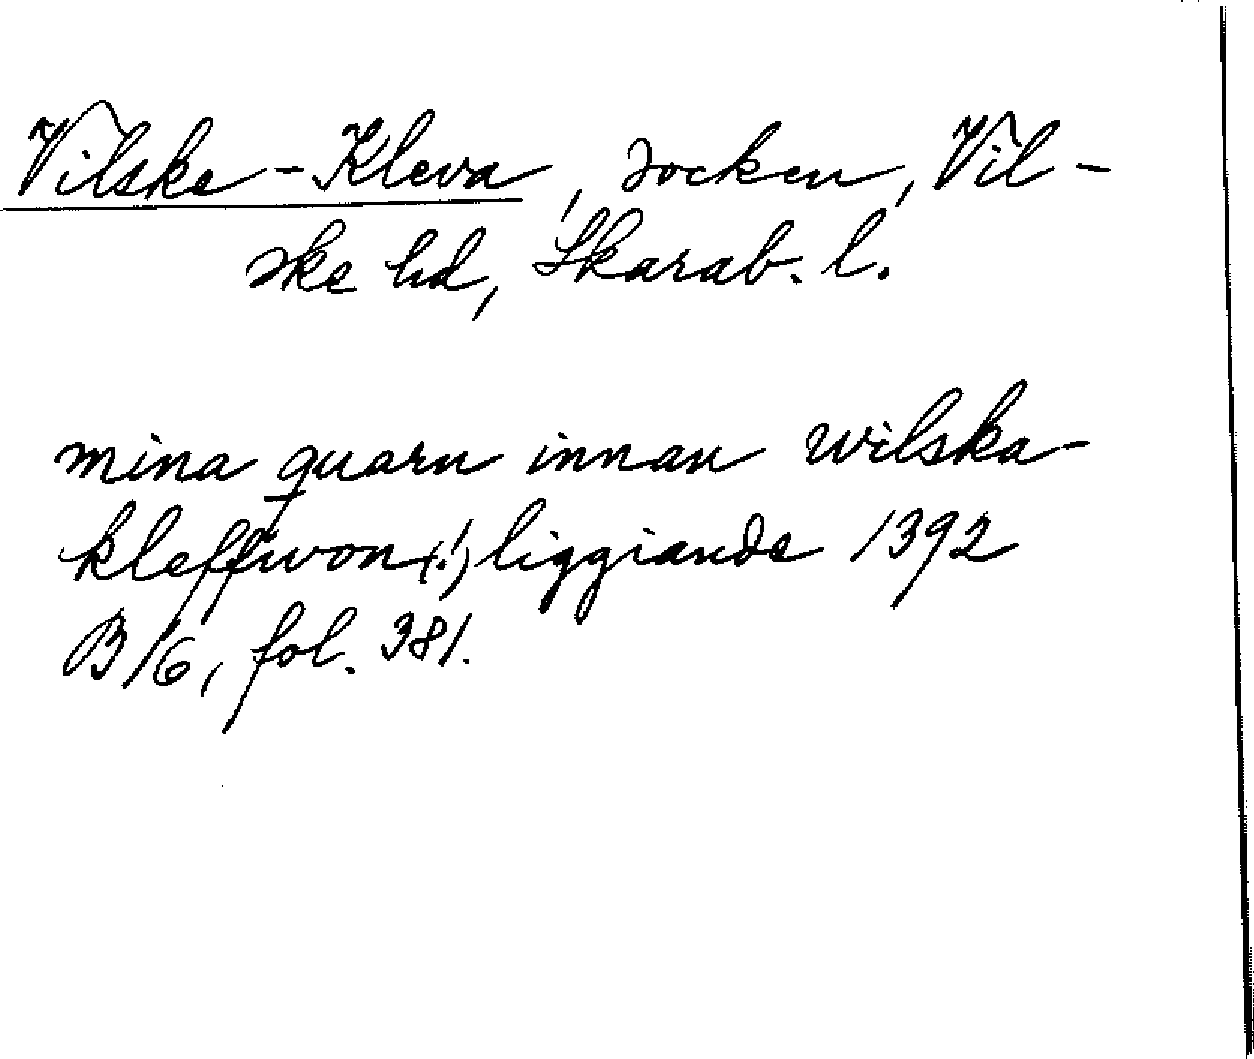 Vilske-Kleva, socken, Vil-
ske hd, Skarab. l.
mina quarn innan wilska-
kleffwon(!) liggiande 1392
B16, fol. 381.